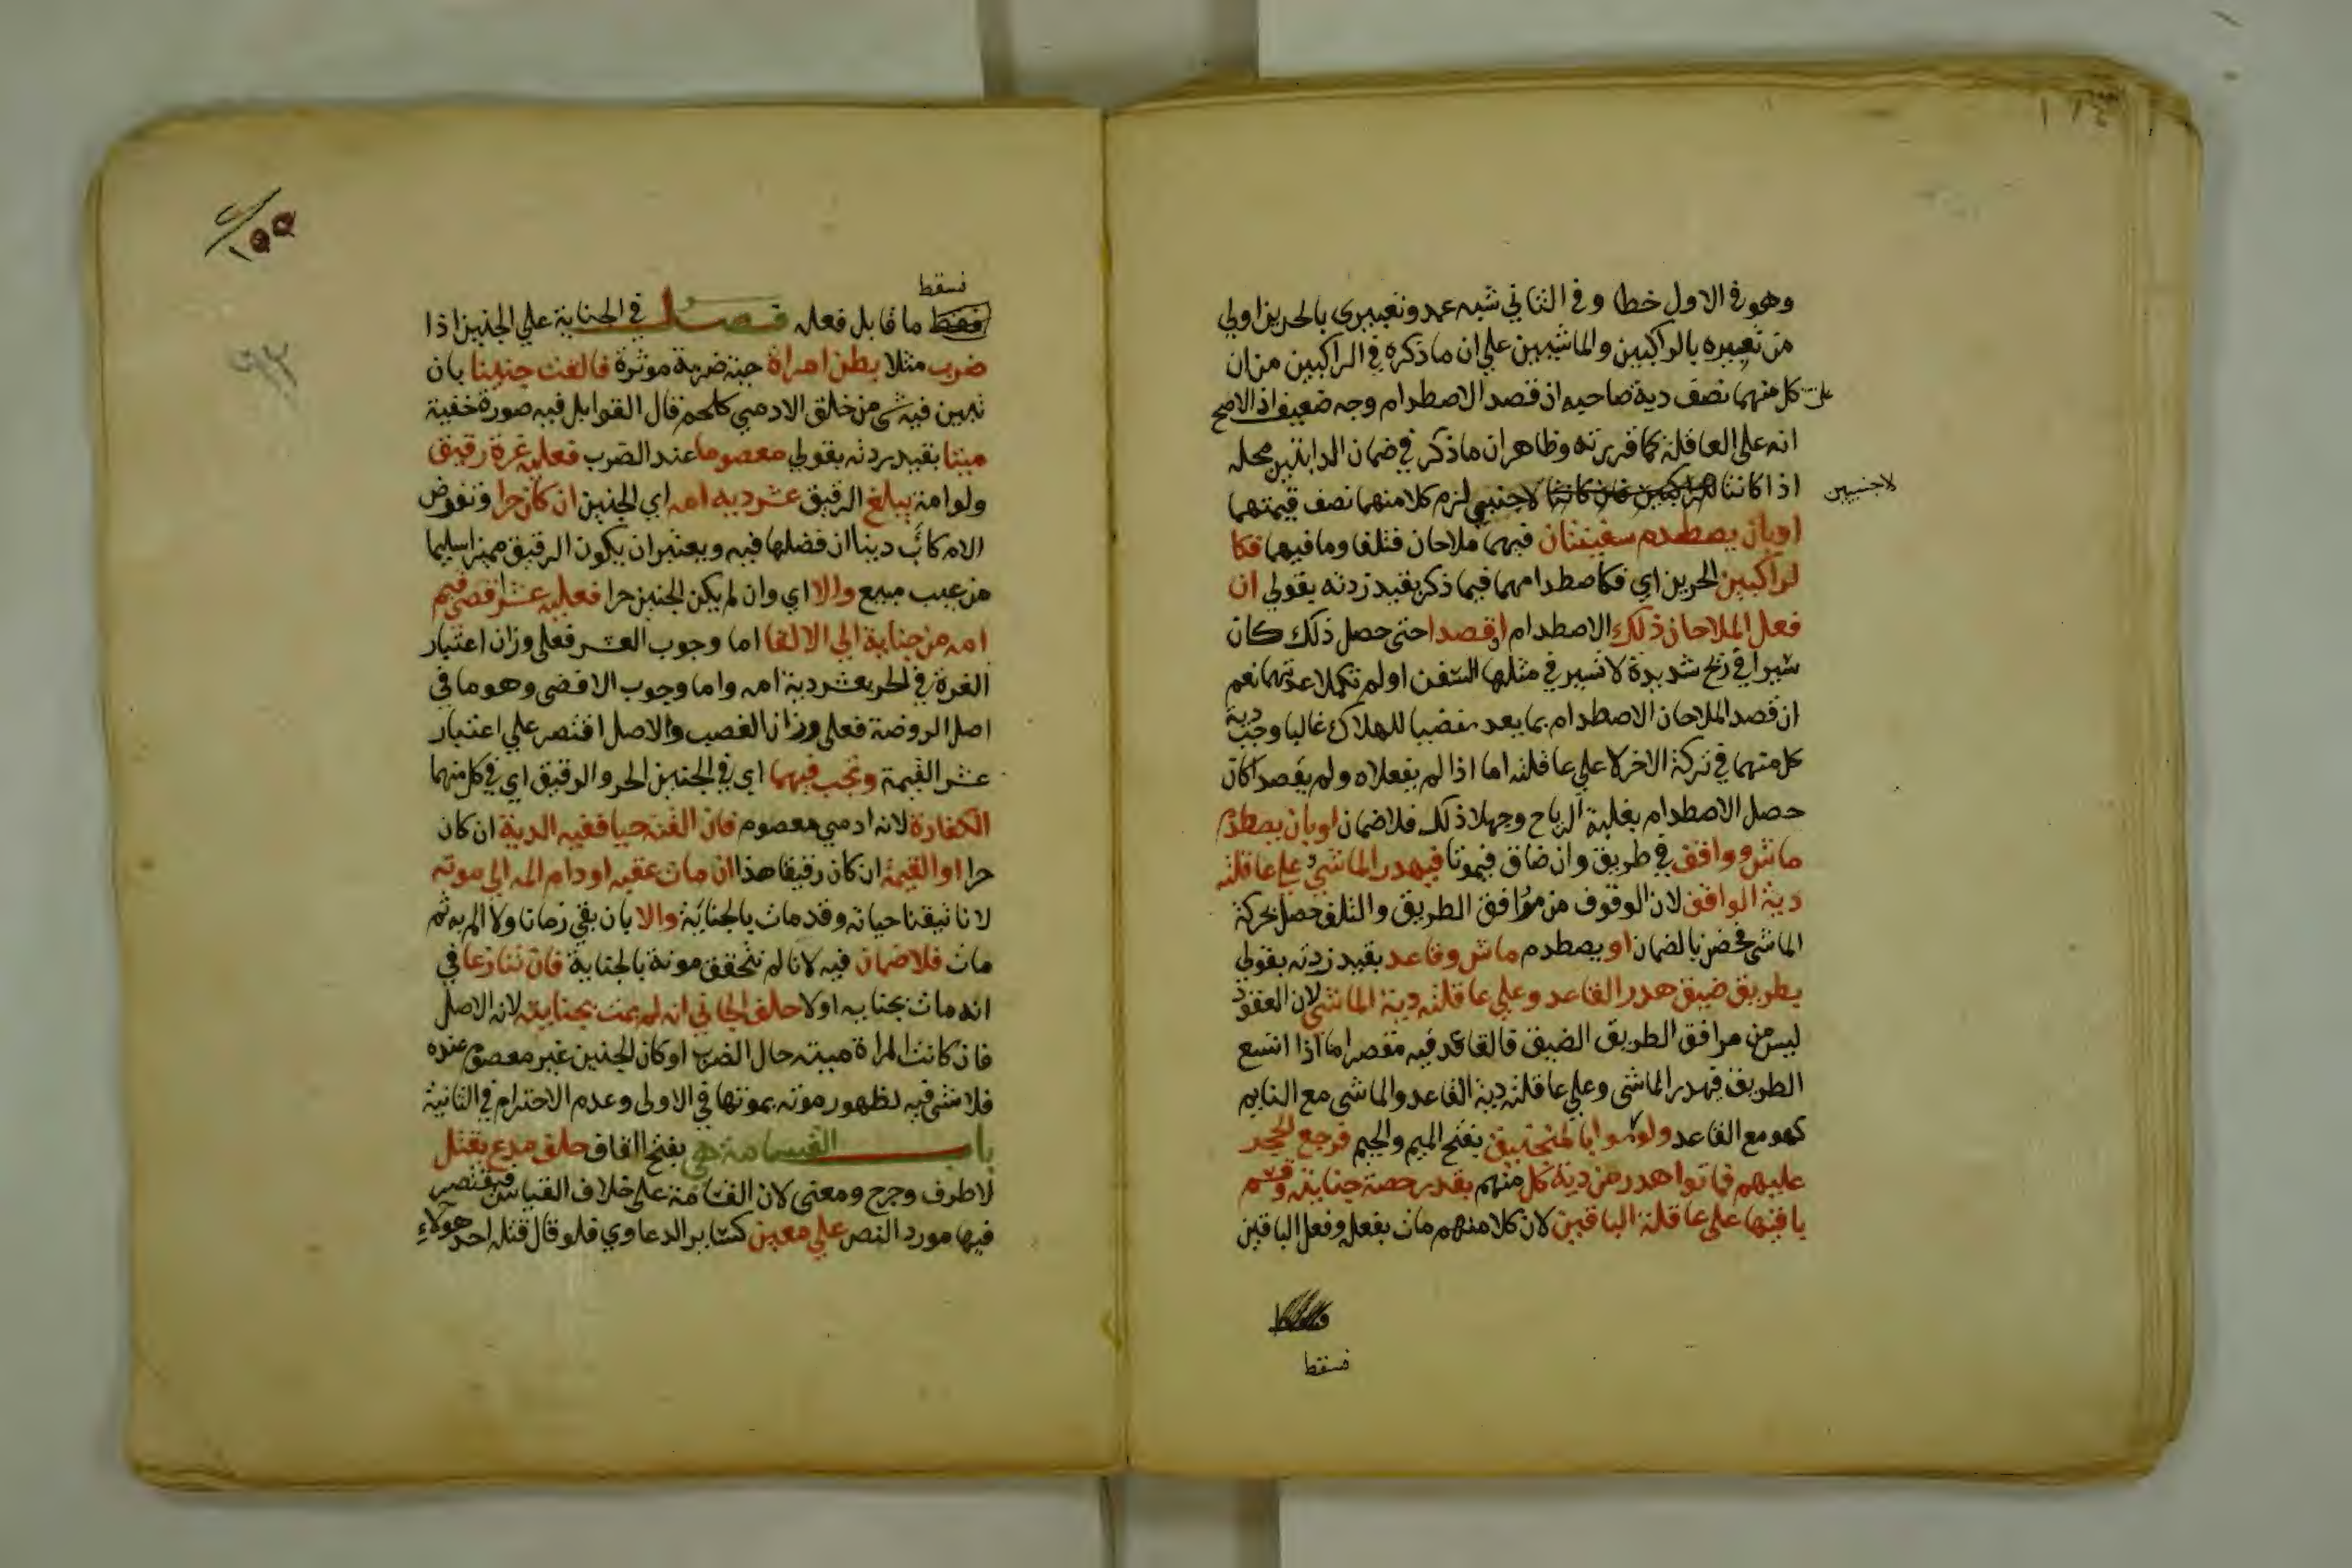 وهو في الاول خطا وفي الثاني شبه عمد وتعبيري بالحرين اولي
من تعبيره بالراكبين والماشيين علي ان ما ذكره في الراكبين من ان
علي كل منهما نصف دية صاحبه ان قصد الاصطدام وجه ضعيف اذ الاصح
انه على العاقلة كما قررته وظاهر ان ما ذكر في ضمان الدابتين محله
اذا كانتا للراكبين فان كانتا لاجنبي لزم كلا منهما نصف قيمتهما
لاجنبيين
او بان يصطدم سفينتان فيهما ملاحان فتلفا وما فيهما فكا
لراكبين الحرين اي فكاصطدامهما فيما ذكر بقيد زدته بقولي ان
فعل الملاحان ذلك الاصطدام او قصدا حتى حصل ذلك كان
سيرا في ريح شديدة لا تسير في مثلها السفن او لم تكملا عدتهما نعم
ان قصد الملاحان الاصطدام بما يعد مفضيا للهلاك غالبا وجب دية
كل منهما في تركة الاخر لا علي عاقلته اما اذا لم يفعلاه ولم يقصدا كان
حصل الاصطدام بغلبة الرياح وجهلا ذلك فلا ضمان او بان يصطدم
ماش وواقف في طريق وان ضاق فيموتا فيهدر الماشي وعلي عاقلته
دية الواقف لان الوقوف من مرافق الطريق والتلف حصل بحركة
الماشي فخص بالضمان او يصطدم ماش وقاعد بقيد زدته بقولي
بطريق ضيق هدر القاعد وعلي عاقلته دية الماشي لان القعود
ليس من مرافق الطريق الضيق فالقاعد فيه مقصر اما اذا اتسع
الطريق فهدر الماشي وعلي عاقلته دية القاعد والماشي مع النايم
كهو مع القاعد ولو رموا بالمنجنيق بفتح الميم والجيم فرجع الحجر
عليهم فماتوا هدر من دية كل منهم بقدر حصة جنايته وقسم
باقيها على عاقلة الباقين لان كلا منهم مات بفعله وفعل الباقين
فسقط
١٥٥
فسقط
فقط ما قابل فعله فصل في الجناية علي الجنين اذا
ضرب مثلا بطن امراة حية ضربة موثرة فالقت جنينا بان
تبين فيه شي من خلق الادمي كلحم قال القوابل فيه صورة خفية
ميتا بقيد زدته بقولي معصوما عند الضرب فعليه غرة رقيق
ولو امة يبلغ الرقيق عشر دية امه اي الجنين ان كان حرا وتفرض
الام كاب دينا ان فضلها فيه ويعتبر ان يكون الرقيق مميزا سليما
من عيب مبيع والا اي وان لم يكن الجنين حرا فعليه عشر اقصي قيم
امه من جناية الي الالقا اما وجوب العشر فعلى وزان اعتبار
الغرة في الحر بعشر دية امه واما وجوب الاقصى وهو ما في
اصل الروضة فعلى وزان الغصب والاصل اقتصر علي اعتبار
عشر القيمة وتجب فيهما اي في الجنين الحر والرقيق اي في كل منهما
الكفارة لانه ادمي معصوم فان القته حيا ففيه الدية ان كان
حرا او القيمة ان كان رقيقا هذا ان مات عقبه او دام المه الي موته
لانا تيقنا حياته وقد مات بالجناية والا بان بقي زمانا ولا الم به ثم
مات فلا ضمان فيه لانا لم نتحقق موته بالجناية فان تنازعا في
انه مات بجنايه اولا حلف الجاني انه لم يمت بجنايته لانه الاصل
فان كانت المراة ميتة حال الضرب او كان الجنين غير معصوم عنده
فلا شي فيه لظهور موته بموتها في الاولى وعدم الاحترام في الثانية
باب القسامة هي بفتح القاف حلف مدع بقتل
لا طرف وجرح ومعنى لان القسامة على خلاف القياس فيقتصر
فيها مورد النص علي معين كسايرالدعاوي فلو قال قتله احد هولاء